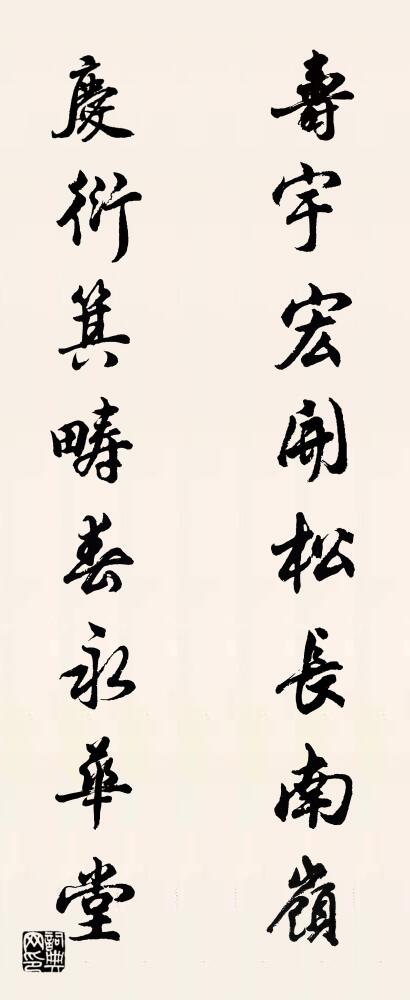 壽宇宏開松長南嶺
慶衍箕疇春永華堂
詞典網印